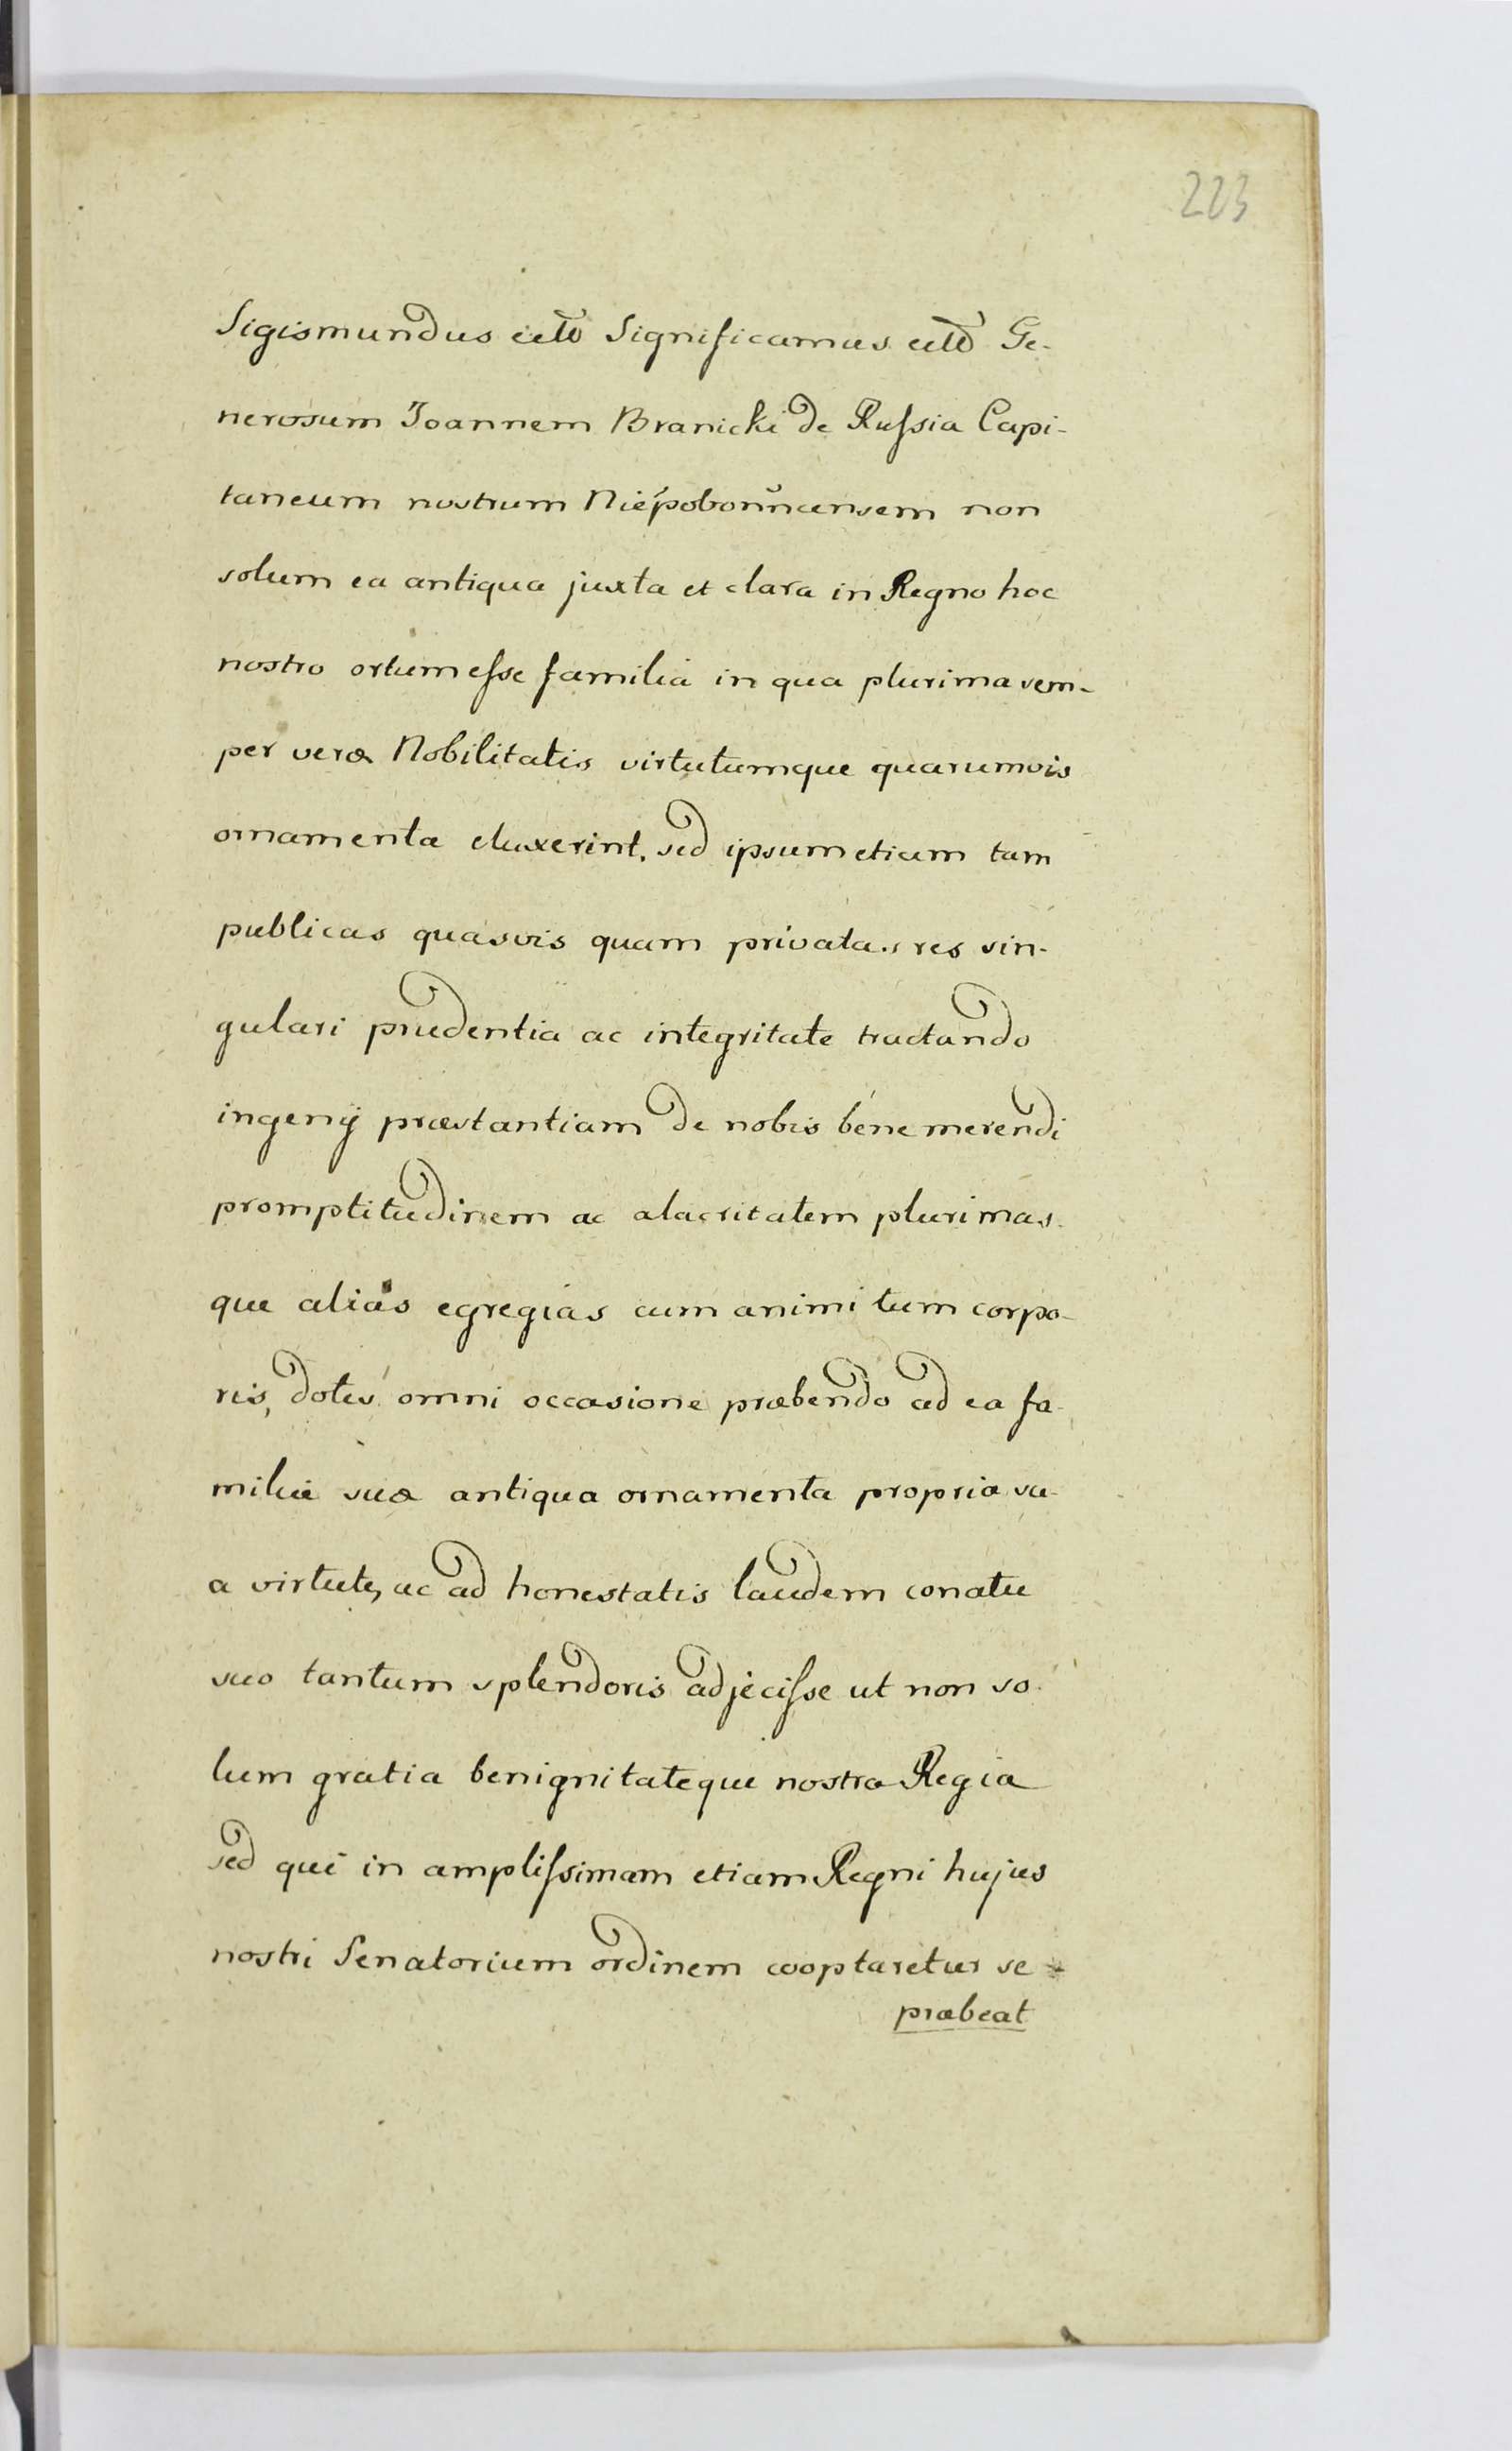 223
Sigismundus ettō Significamus ettō Ge-
nerosum Joannem Branicki de Ruſsia Capi-
taneum nostrum Niépobon̆ncensem non
solum ea antiqua juxta et clara in Regno hoc
nostro ortum eſse familia in qua plurima sem-
per veræ Nobilitatis virtutumque quarumvis
ornamenta eluxerint, sed ipsum etiam tam
publicas quasvis quam privatas res sin-
gulari prudentia ac integritate tractando
ingenij præstantiam de nobis bene merendi
promptitudinem ac alacritatem plurimas-
que alias egregias cum animi tum corpo-
ris, dotes omni occasione præbendo ad ea fa-
miliæ suæ antiqua ornamenta propria su-
a virtute, ac ad honestatis laudem conatu
suo tantum splendoris adjeciſse ut non so-
lum gratia benignitateque nostra Regia
sed qui in ampliſsimam etiam Regni hujus
nostri Senatorium ordinem cooptaretur se
præbeat